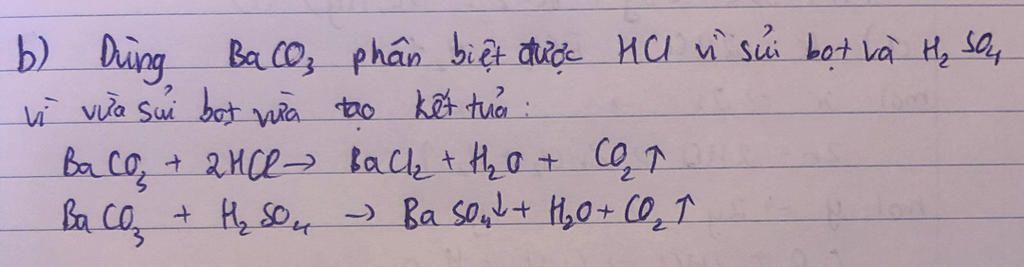 b) Dùng BaCO₃ phân biệt được HCl vì sủi bọt và H₂SO₄
vì vừa sủi bọt vừa tạo kết tủa:
BaCO₃ + 2HCl → BaCl₂ + H₂O + CO₂↑
BaCO₃ + H₂SO₄ → BaSO₄↓ + H₂O + CO₂↑